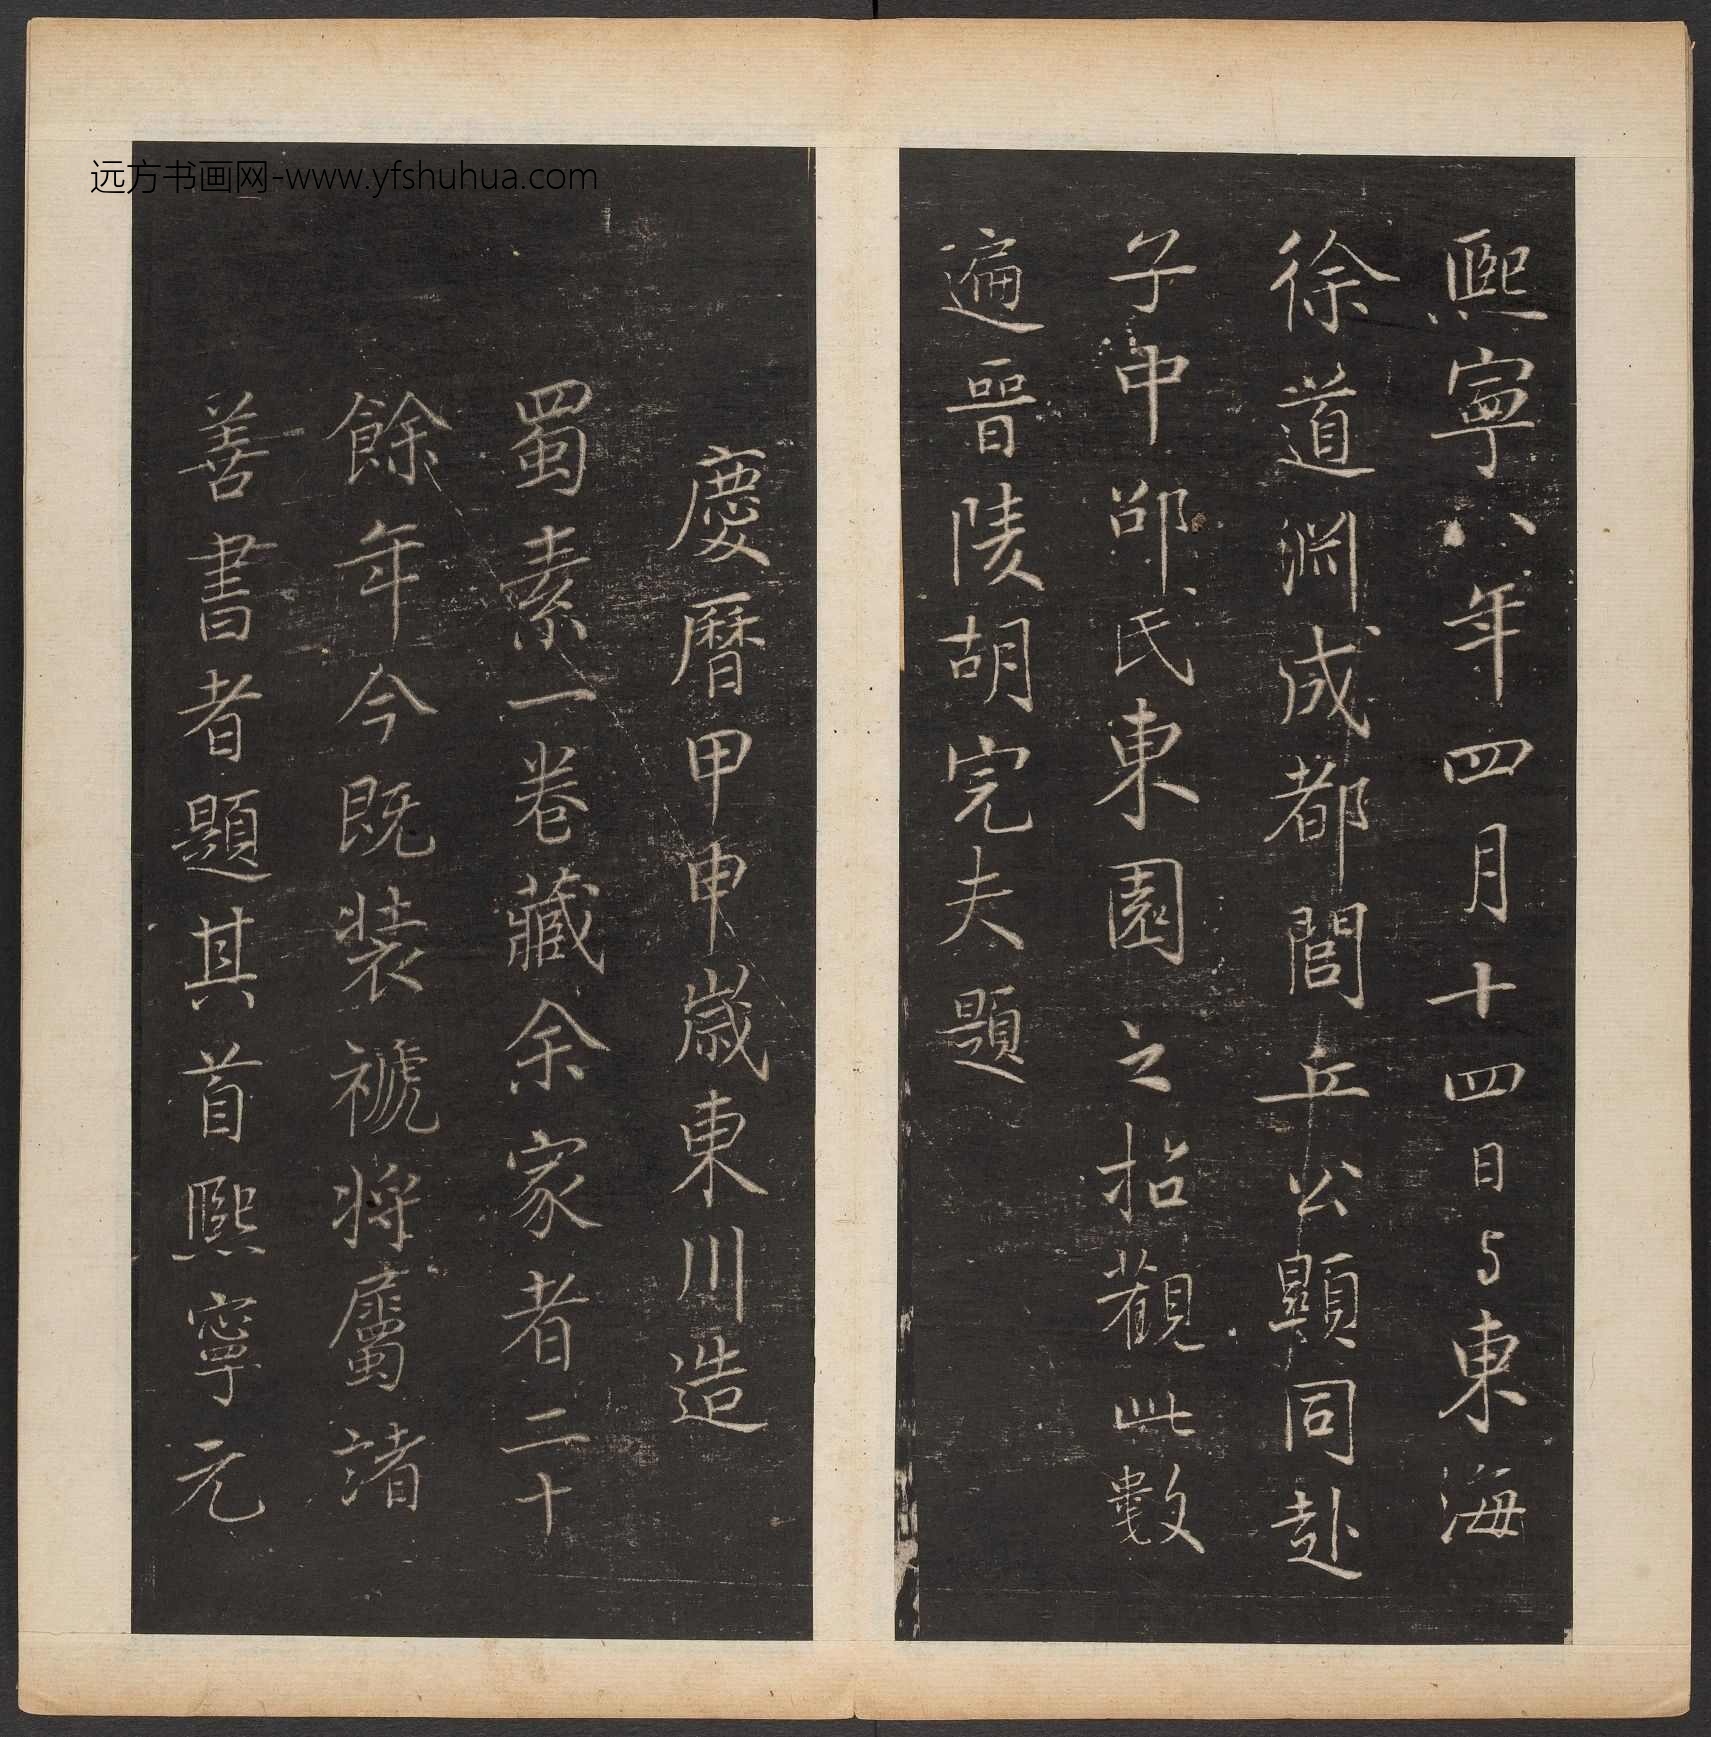 熙寧八年四月十四日与東海
徐道淵成都閭丘公顯同赴
子中邵氏東園之招觀此數
遍晉陵胡完夫題
慶曆甲申歳東川造
蜀素一卷藏余家者二十
餘年今既装褫將屬諸
善書者題其首熙寧元
远方书画网-www.yfshuhua.com